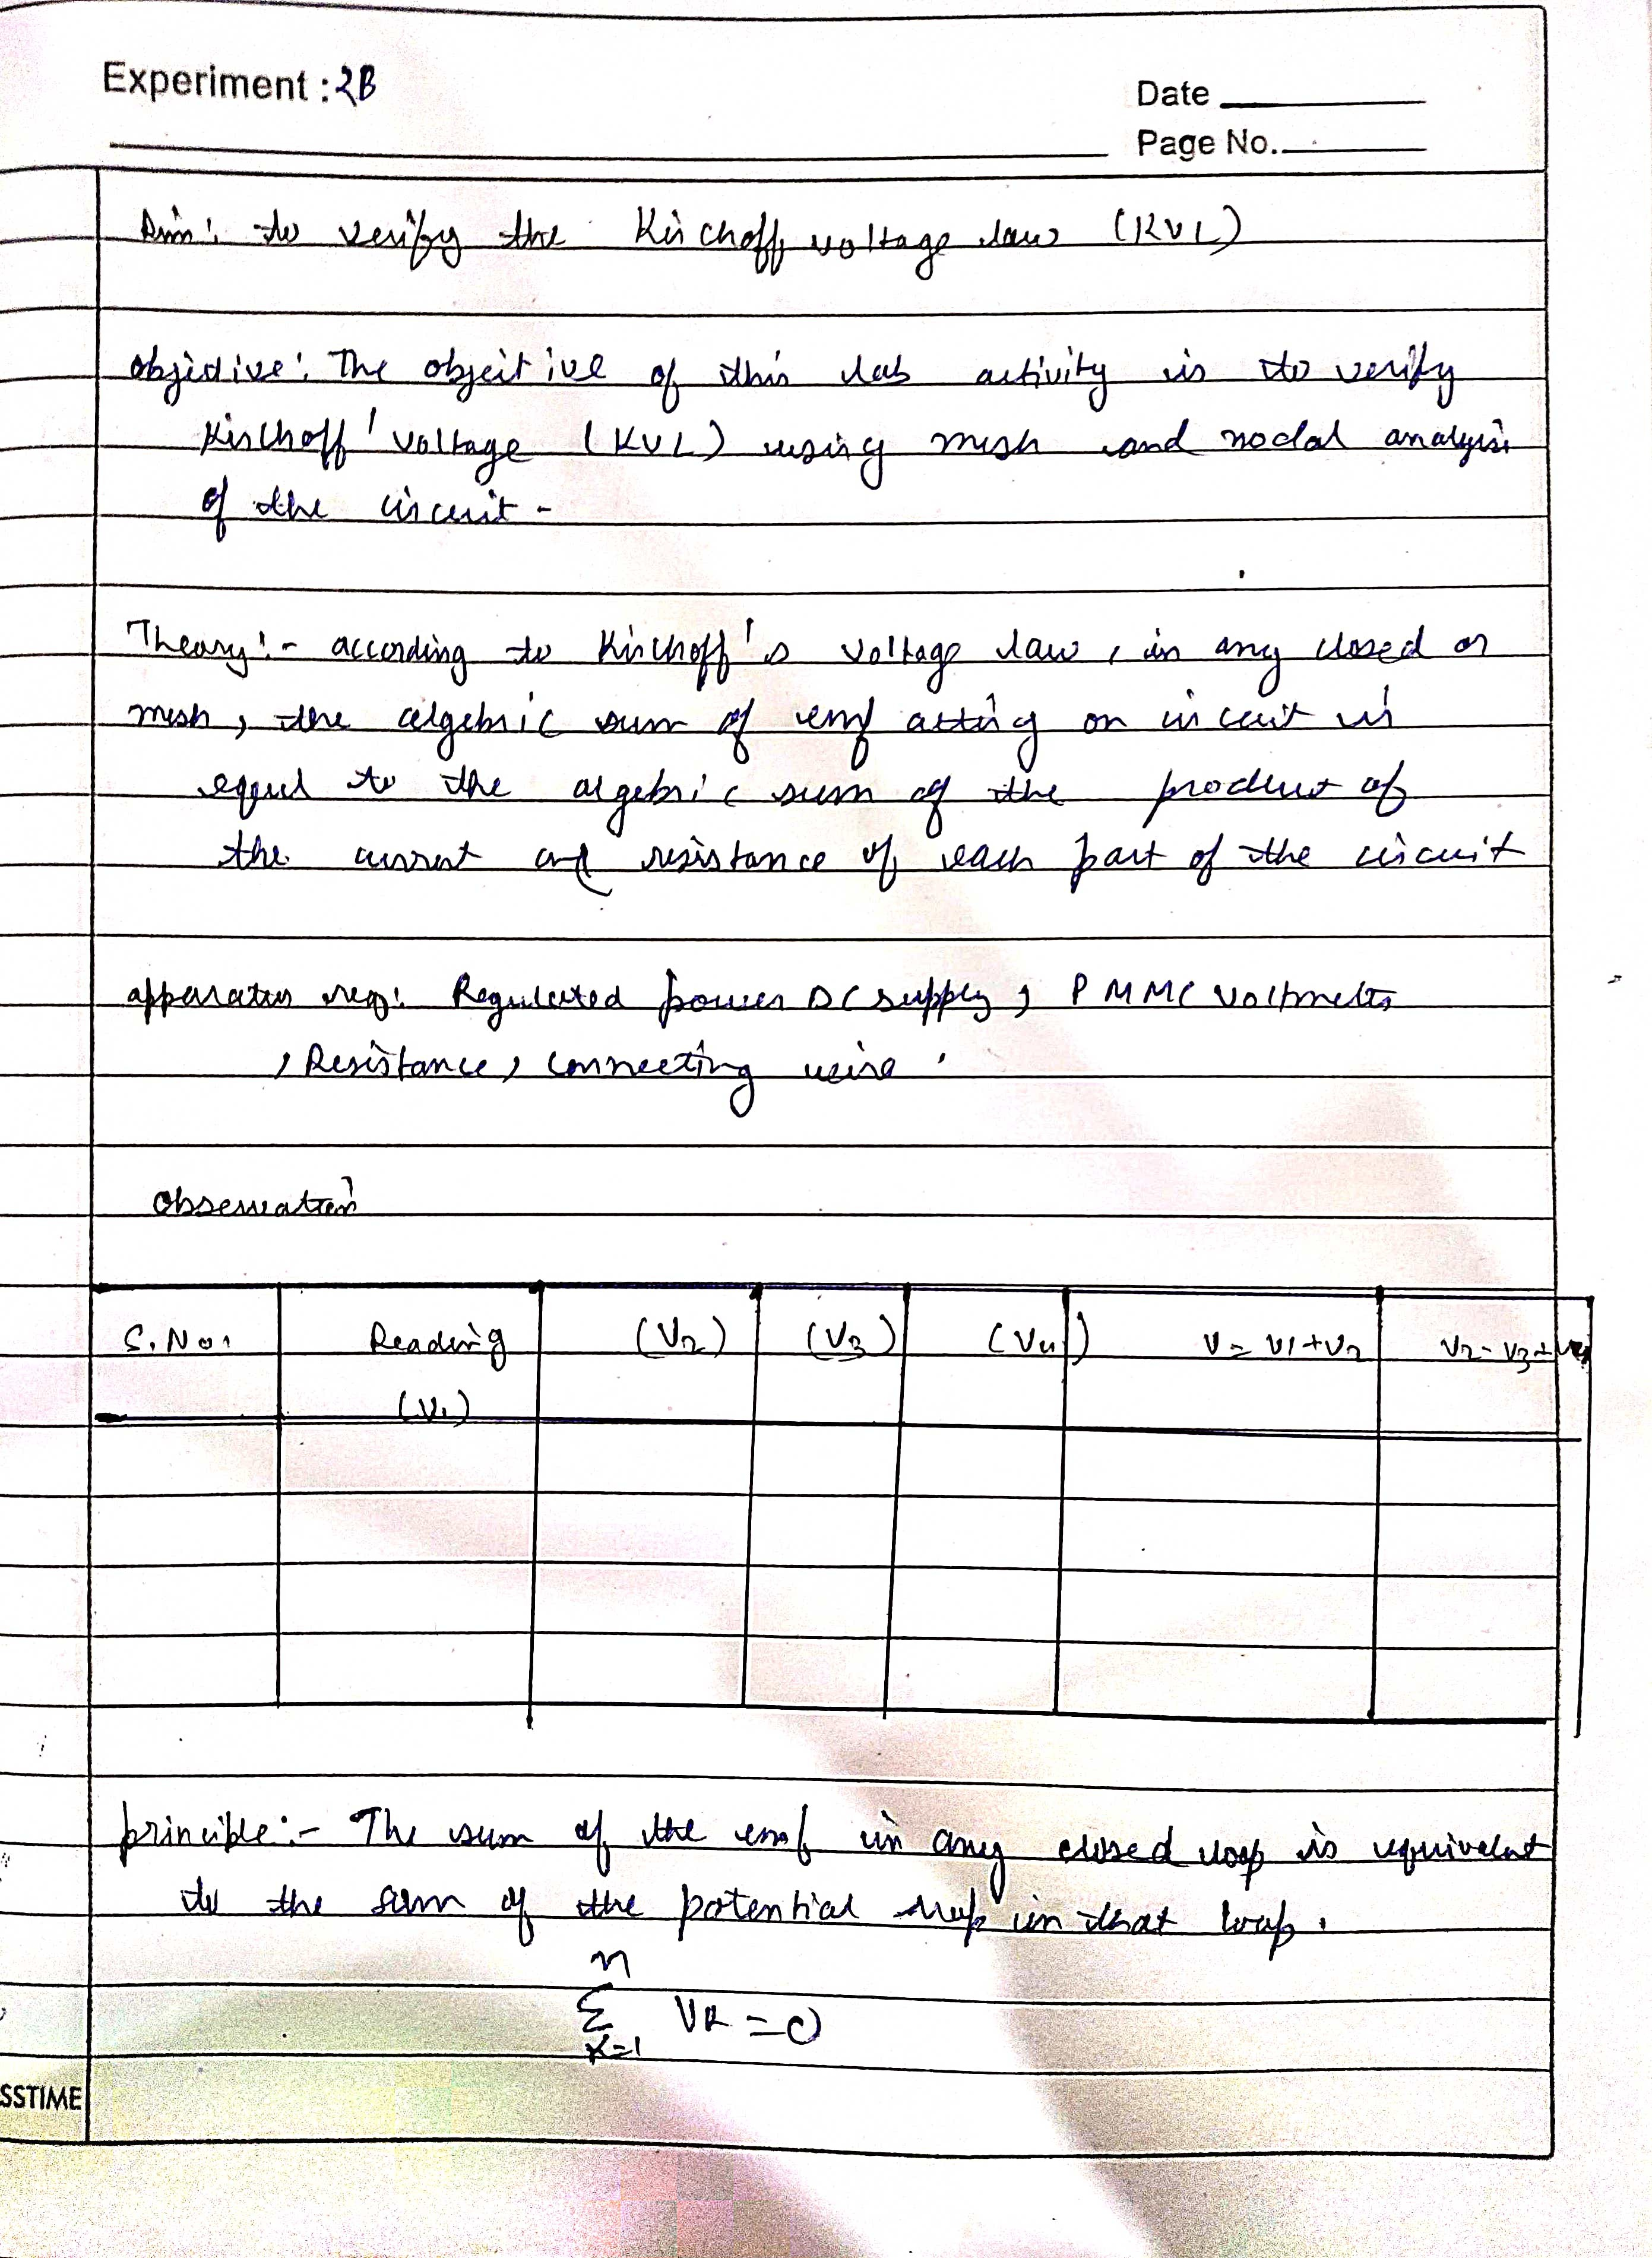 Experiment : 2B
Date
Page No.
Aim: to verify the Kirchoff voltage law (KVL)
objective: The objective of this lab activity is to verify
Kirchoff' voltage (KVL) using mesh and nodal analysis
of the circuit -
Theory:- according to Kirchoff's voltage law, in any closed or
mesh, the algebric sum of emf acting on circuit is
equal to the algebric sum of the product of
the current and resistance of each part of the circuit
apparatus req: Regulated power DC supply, PMMC voltmeter
, Resistance, connecting wire.
observation
S. No. Reading (V2) (V3) (V4) V = V1+V2 V2 = V3+V4
(V1)
principle:- The sum of the emf in any closed loop is equivalent
to the sum of the potential drop in that loop.
n
Σ VK = 0
K=1
SSTIME